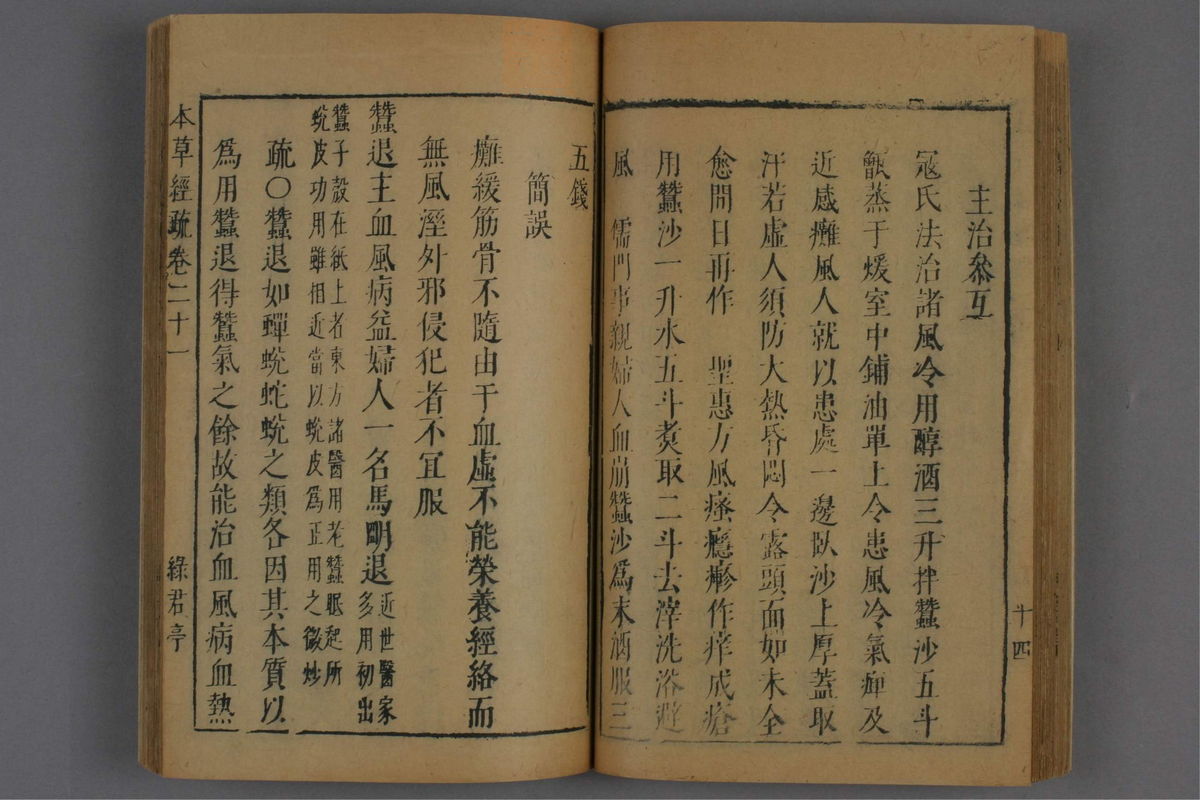 主治叅互
宼氏法治諸風冷用醇酒三升拌蠶沙五斗
甑蒸于煖室中鋪油單上令患風冷氣痺及
近感癱風人就以患處一邊臥沙上厚蓋取
汗若虛人須防大熱昏悶令露頭面如未全
愈間日再作　聖惠方風瘙癮瘮作痒成瘡
用蠶沙一升水五斗煑取二斗去滓洗浴避
風　儒門事親婦人血崩蠶沙爲末酒服三
十四
五錢
簡誤
癱緩筋骨不隨由于血虛不能榮養經絡而
無風溼外邪侵犯者不宜服
蠶退主血風病益婦人一名馬明退近世醫家
多用初出
蠶子殼在紙上者東方諸醫用老蠶眠起所
蛻皮功用雖相近當以蛻皮爲正用之微炒
疏〇蠶退如蟬蛻蛇蛻之類各因其本質以
爲用蠶退得蠶氣之餘故能治血風病血熱
本草經疏卷二十一
綠君亭